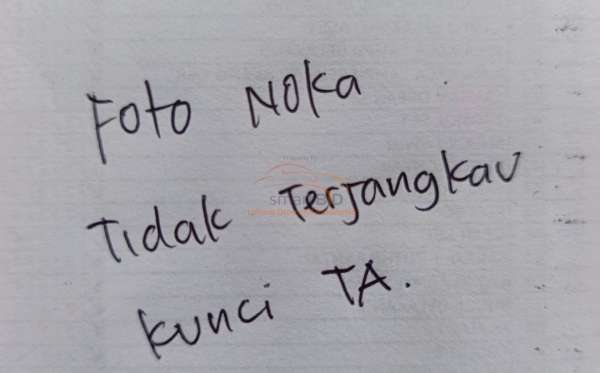 Foto Noka
Tidak Terjangkau
kunci TA.